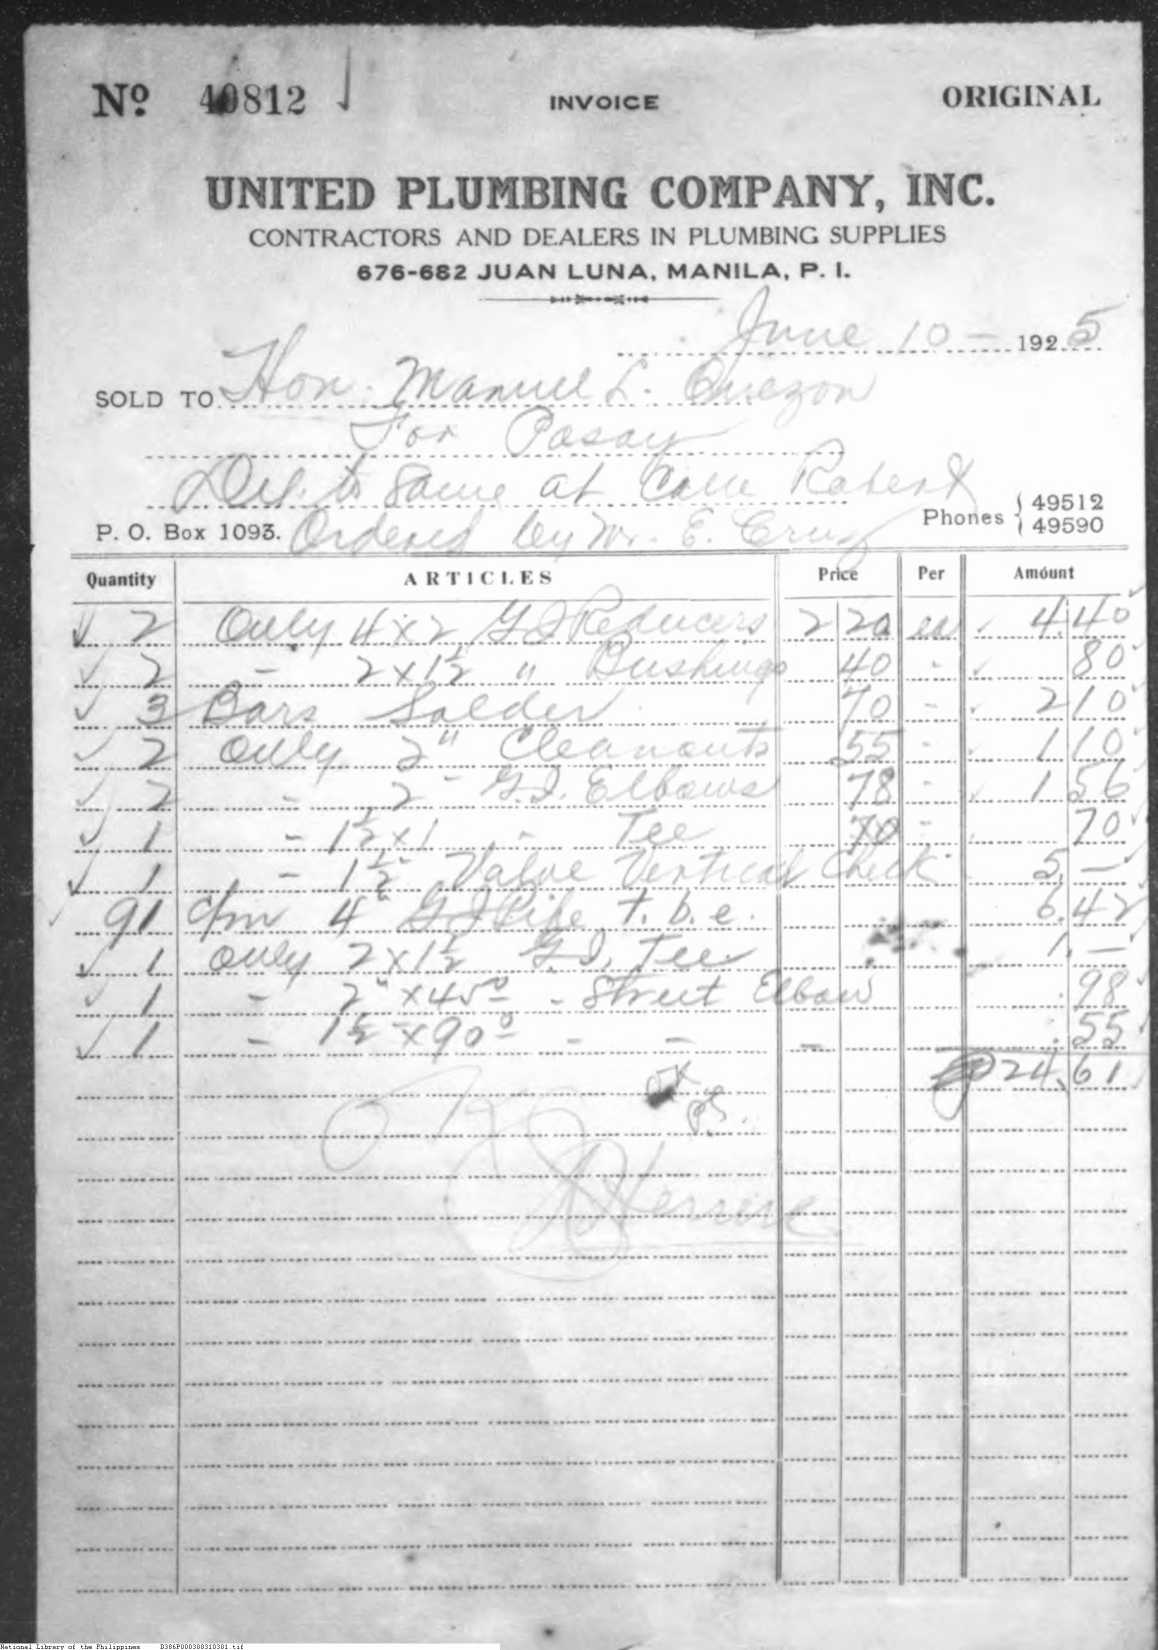 No. 40812 INVOICE ORIGINAL
UNITED PLUMBING COMPANY, INC.
CONTRACTORS AND DEALERS IN PLUMBING SUPPLIES
676-682 JUAN LUNA, MANILA, P. I.
June 10 - 1925
SOLD TO Hon. Manuel L. Quezon
For Pasay
Del. to Same at Calle Robert
Phones 49512
49590
P. O. Box 1093. Ordered by Mr. E. Cruz
Quantity ARTICLES Price Per Amount
2 Only 4 x 2 G I Reducers 2 20 ea 4.40
2 - 2 x 1½ " Bushings 40 - 80
3 Bars Solder 70 - 2 10
2 Only 2" Cleanouts 55 - 1 10
2 - 2" G.I. Elbows 78 - 1 56
1 - 1½ x 1 - Tee 70 - 70
1 - 1½" Valve Vertical Check 5. -
91 c/m 4" G I Pipe t. b. e. 6.42
1 only 2 x 1½ G.I. Tee 1. -
1 - 2" x 45° - Street Elbow .98
1 - 1½ x 90° - - - .55
₱24.61
OK
OK
National Library of the Philippines B386P000300310301.tif